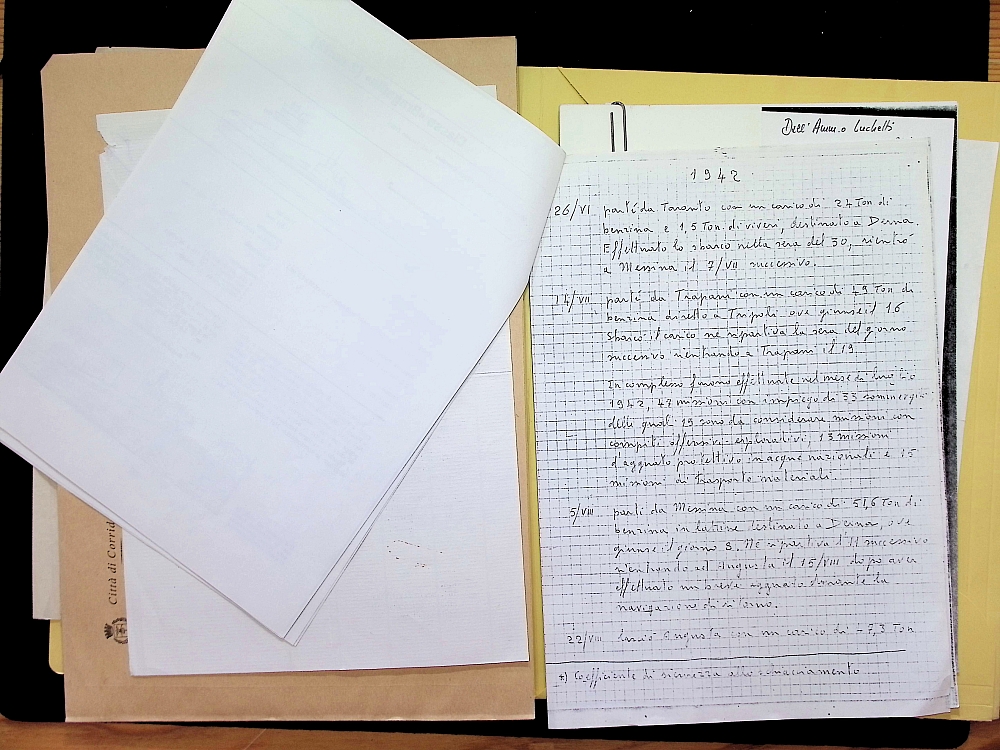 Città di Corrido
Dell'Amm.o Luchetti
1942
26/VI partì da Taranto con un carico di 24 Ton di
benzina e 1,5 Ton. di viveri, destinato a Derna
Effettuato lo sbarco nella sera del 30, rientrò
a Messina il 7/VII successivo.
14/VII partì da Trapani con un carico di 49 Ton di
benzina diretto a Tripoli ove giunse il 16
sbarcò il carico ne ripartiva la sera del giorno
successivo rientrando a Trapani il 19
In complesso furono effettuate nel mese di luglio
1942, 47 missioni con impiego di 33 sommergi
delle quali 19 sono da considerare missioni con
compiti offensivi-esplorativi, 13 missioni
d'agguato protettivo in acque nazionali e 15
missioni di trasporto materiali.
5/VIII partì da Messina con un carico di 51,6 Ton di
benzina in latine destinato a Derna, ove
giunse il giorno 8. Ne ripartiva l'11 successivo
rientrando ad Augusta il 15/VIII dopo aver
effettuato un breve agguato durante la
navigazione di ritorno.
22/VIII lasciò Augusta con un carico di 7,3 Ton
*) Coefficiente di sicurezza allo schiacciamento